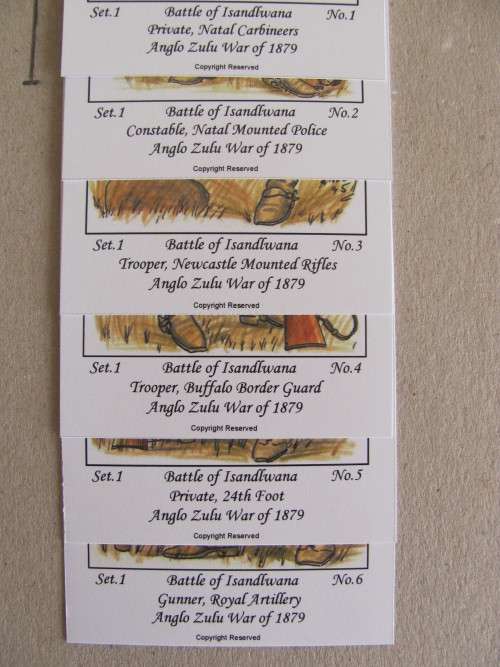 Set.1 Battle of Isandlwana No.1
Private, Natal Carbineers
Anglo Zulu War of 1879
Copyright Reserved
Set.1 Battle of Isandlwana No.2
Constable, Natal Mounted Police
Anglo Zulu War of 1879
Copyright Reserved
Set.1 Battle of Isandlwana No.3
Trooper, Newcastle Mounted Rifles
Anglo Zulu War of 1879
Copyright Reserved
Set.1 Battle of Isandlwana No.4
Trooper, Buffalo Border Guard
Anglo Zulu War of 1879
Copyright Reserved
Set.1 Battle of Isandlwana No.5
Private, 24th Foot
Anglo Zulu War of 1879
Copyright Reserved
Set.1 Battle of Isandlwana No.6
Gunner, Royal Artillery
Anglo Zulu War of 1879
Copyright Reserved